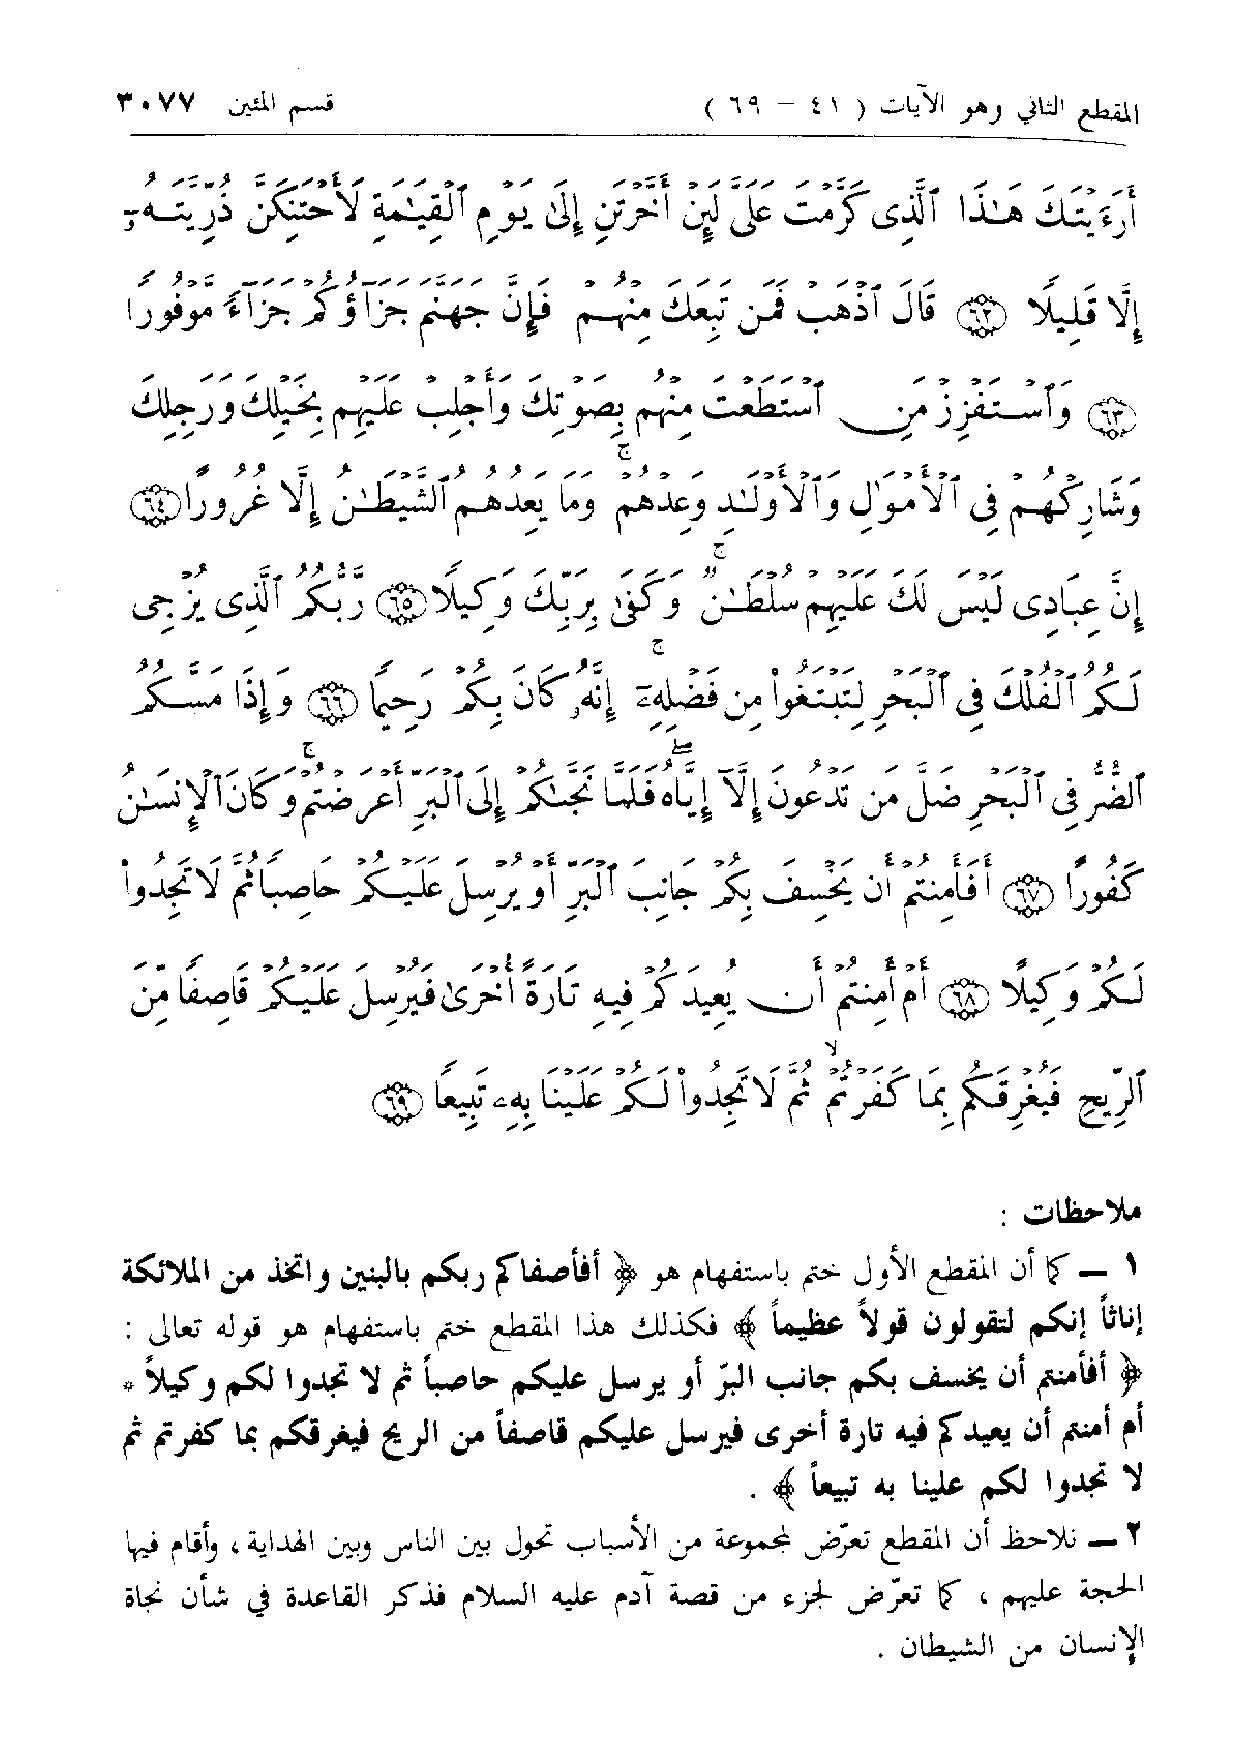 المقطع الثاني وهو الآيات ( ٤١ - ٦٩ ) قسم المئين ٣٠٧٧
أَرَءَيْتَكَ هَـٰذَا ٱلَّذِى كَرَّمْتَ عَلَىَّ لَئِنْ أَخَّرْتَنِ إِلَىٰ يَوْمِ ٱلْقِيَـٰمَةِ لَأَحْتَنِكَنَّ ذُرِّيَّتَهُۥٓ
إِلَّا قَلِيلًا ﴿٦٢﴾ قَالَ ٱذْهَبْ فَمَن تَبِعَكَ مِنْهُمْ فَإِنَّ جَهَنَّمَ جَزَآؤُكُمْ جَزَآءً مَّوْفُورًا
﴿٦٣﴾ وَٱسْتَفْزِزْ مَنِ ٱسْتَطَعْتَ مِنْهُم بِصَوْتِكَ وَأَجْلِبْ عَلَيْهِم بِخَيْلِكَ وَرَجِلِكَ
وَشَارِكْهُمْ فِى ٱلْأَمْوَٰلِ وَٱلْأَوْلَـٰدِ وَعِدْهُمْ ۚ وَمَا يَعِدُهُمُ ٱلشَّيْطَـٰنُ إِلَّا غُرُورًا ﴿٦٤﴾
إِنَّ عِبَادِى لَيْسَ لَكَ عَلَيْهِمْ سُلْطَـٰنٌ ۚ وَكَفَىٰ بِرَبِّكَ وَكِيلًا ﴿٦٥﴾ رَّبُّكُمُ ٱلَّذِى يُزْجِى
لَكُمُ ٱلْفُلْكَ فِى ٱلْبَحْرِ لِتَبْتَغُوا۟ مِن فَضْلِهِۦٓ ۚ إِنَّهُۥ كَانَ بِكُمْ رَحِيمًا ﴿٦٦﴾ وَإِذَا مَسَّكُمُ
ٱلضُّرُّ فِى ٱلْبَحْرِ ضَلَّ مَن تَدْعُونَ إِلَّآ إِيَّاهُ ۖ فَلَمَّا نَجَّىٰكُمْ إِلَى ٱلْبَرِّ أَعْرَضْتُمْ ۚ وَكَانَ ٱلْإِنسَـٰنُ
كَفُورًا ﴿٦٧﴾ أَفَأَمِنتُمْ أَن يَخْسِفَ بِكُمْ جَانِبَ ٱلْبَرِّ أَوْ يُرْسِلَ عَلَيْكُمْ حَاصِبًا ثُمَّ لَا تَجِدُوا۟
لَكُمْ وَكِيلًا ﴿٦٨﴾ أَمْ أَمِنتُمْ أَن يُعِيدَكُمْ فِيهِ تَارَةً أُخْرَىٰ فَيُرْسِلَ عَلَيْكُمْ قَاصِفًا مِّنَ
ٱلرِّيحِ فَيُغْرِقَكُم بِمَا كَفَرْتُمْ ۙ ثُمَّ لَا تَجِدُوا۟ لَكُمْ عَلَيْنَا بِهِۦ تَبِيعًا ﴿٦٩﴾
ملاحظات :
١ ــ كما أن المقطع الأول ختم باستفهام هو ﴿ أفأصفاكم ربكم بالبنين واتخذ من الملائكة
إناثاً إنكم لتقولون قولاً عظيماً ﴾ فكذلك هذا المقطع ختم باستفهام هو قوله تعالى :
﴿ أفأمنتم أن يخسف بكم جانب البرّ أو يرسل عليكم حاصباً ثم لا تجدوا لكم وكيلاً *
أم أمنتم أن يعيدكم فيه تارة أخرى فيرسل عليكم قاصفاً من الريح فيغرقكم بما كفرتم ثم
لا تجدوا لكم علينا به تبيعاً ﴾ .
٢ ــ نلاحظ أن المقطع تعرّض لمجموعة من الأسباب تحول بين الناس وبين الهداية ، وأقام فيها
الحجة عليهم ، كما تعرّض لجزء من قصة آدم عليه السلام فذكر القاعدة في شأن نجاة
الإنسان من الشيطان .